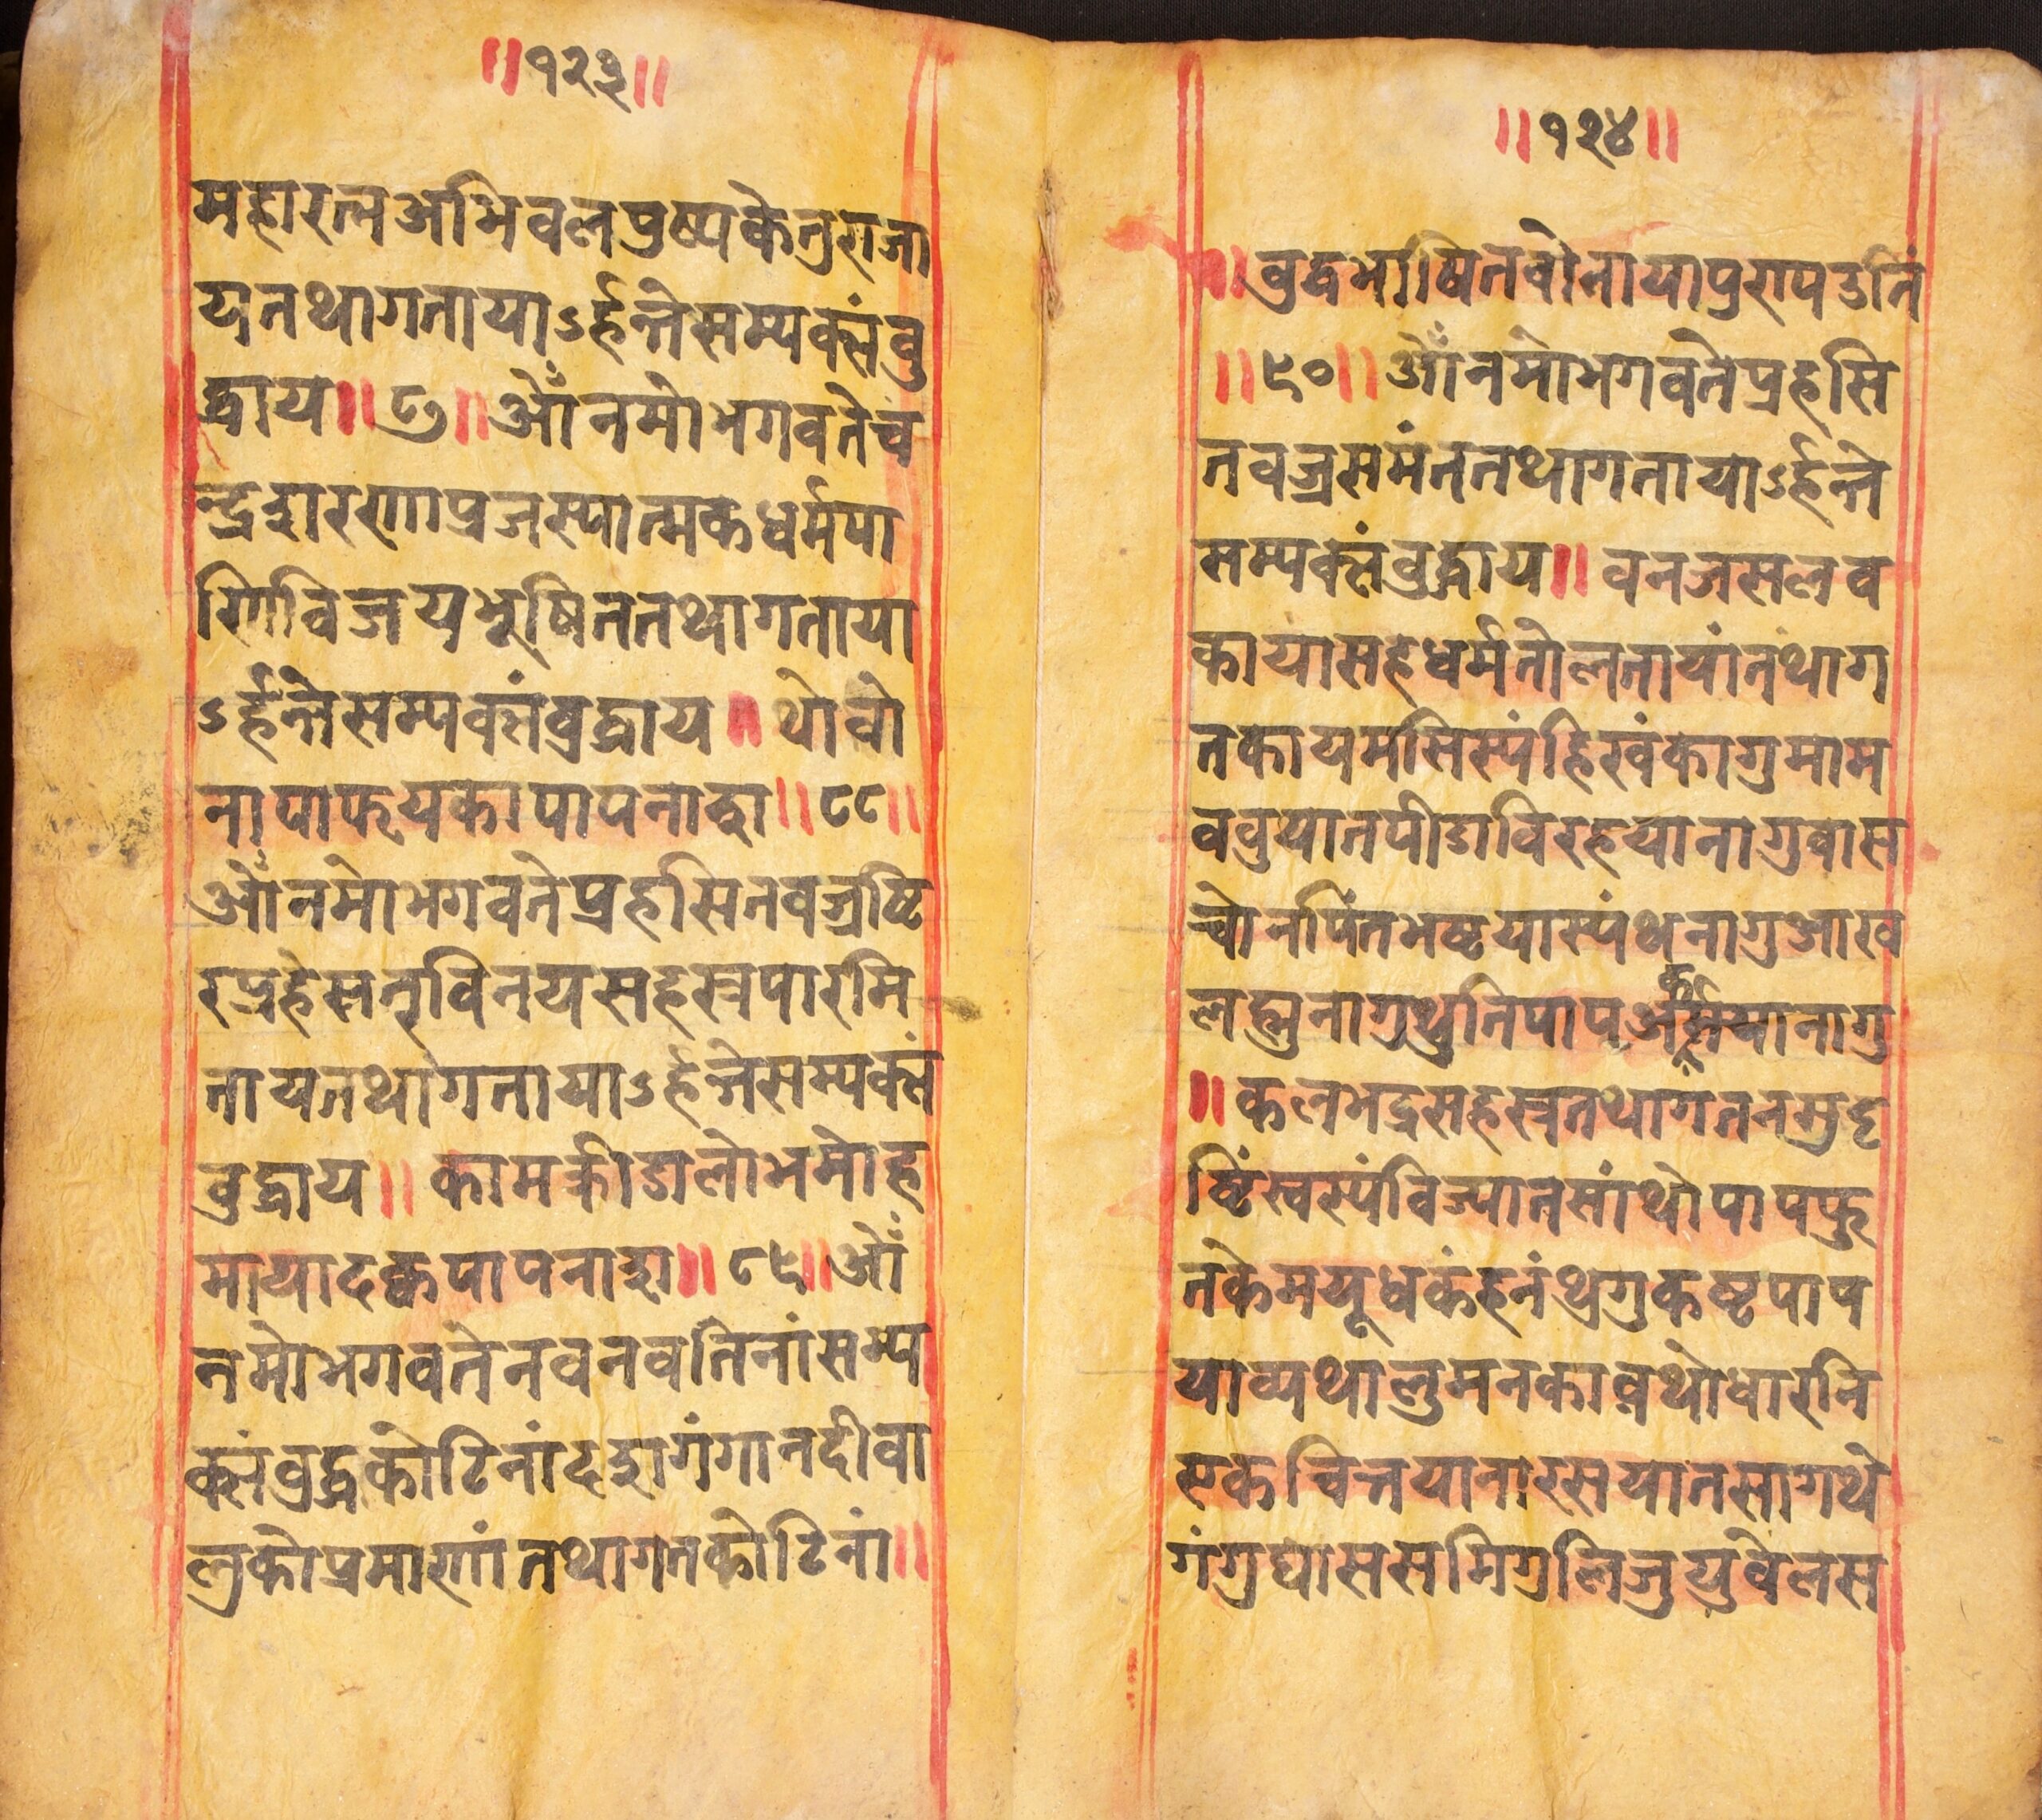 ॥१२३॥
महारत्नअभिवलपुष्पकेतुराजा
यतथागतायाऽर्हन्तेसम्यक्संवु
द्धाय॥८७॥ओँनमोभगवतेच
न्द्रशारणाप्रजस्यात्मकधर्मपा
णिविजयभूषिततथागताया
ऽर्हन्तेसम्यक्संवुद्धाय॥थोवो
नापाफयकापापनाश॥८८॥
ओँनमोभगवतेप्रहसितवज्रष्टि
रप्रहेसतृविनयसहस्त्रपारमि
तायतथागतायाऽर्हन्तेसम्यक्सं
वुद्धाय॥कामक्रीडालोभमोह
मायादक्वपापनाश॥८९॥ओँ
नमोभगवतेनवनवतिनांसम्य
क्संवुद्धकोटिनांदशगंगानदीवा
लुकोप्रमाणांतथागतकोटिनां॥
॥१२४॥
॥वुद्धभाषितवोनायापुरापउतिं
॥९०॥ओँनमोभगवतेप्रहसि
तवज्रसमंततथागतायाऽर्हन्ते
सम्यक्संवुद्धाय॥वनजसलव
कायासहेधर्मतोलतायांतथाग
तकायमसिस्यंहिखंकागुमाम
ववुयातपीडाविरहयानागुवास
चोनपिंतभष्टयास्यंथनागुआख
लह्लुनागुथुनिपाप
॥कलभद्रसहस्त्रतथागतनम्रदृ
ष्टिंस्वस्यंविज्यातसांथोपापफु
तकेमयूधकंहनंथ्रगुकष्टपाप
याव्यथालुमनकावथोधारनि
एकचित्तयानारसयातसागथे
गंगुघाससमिगुलिजुयुवेलस